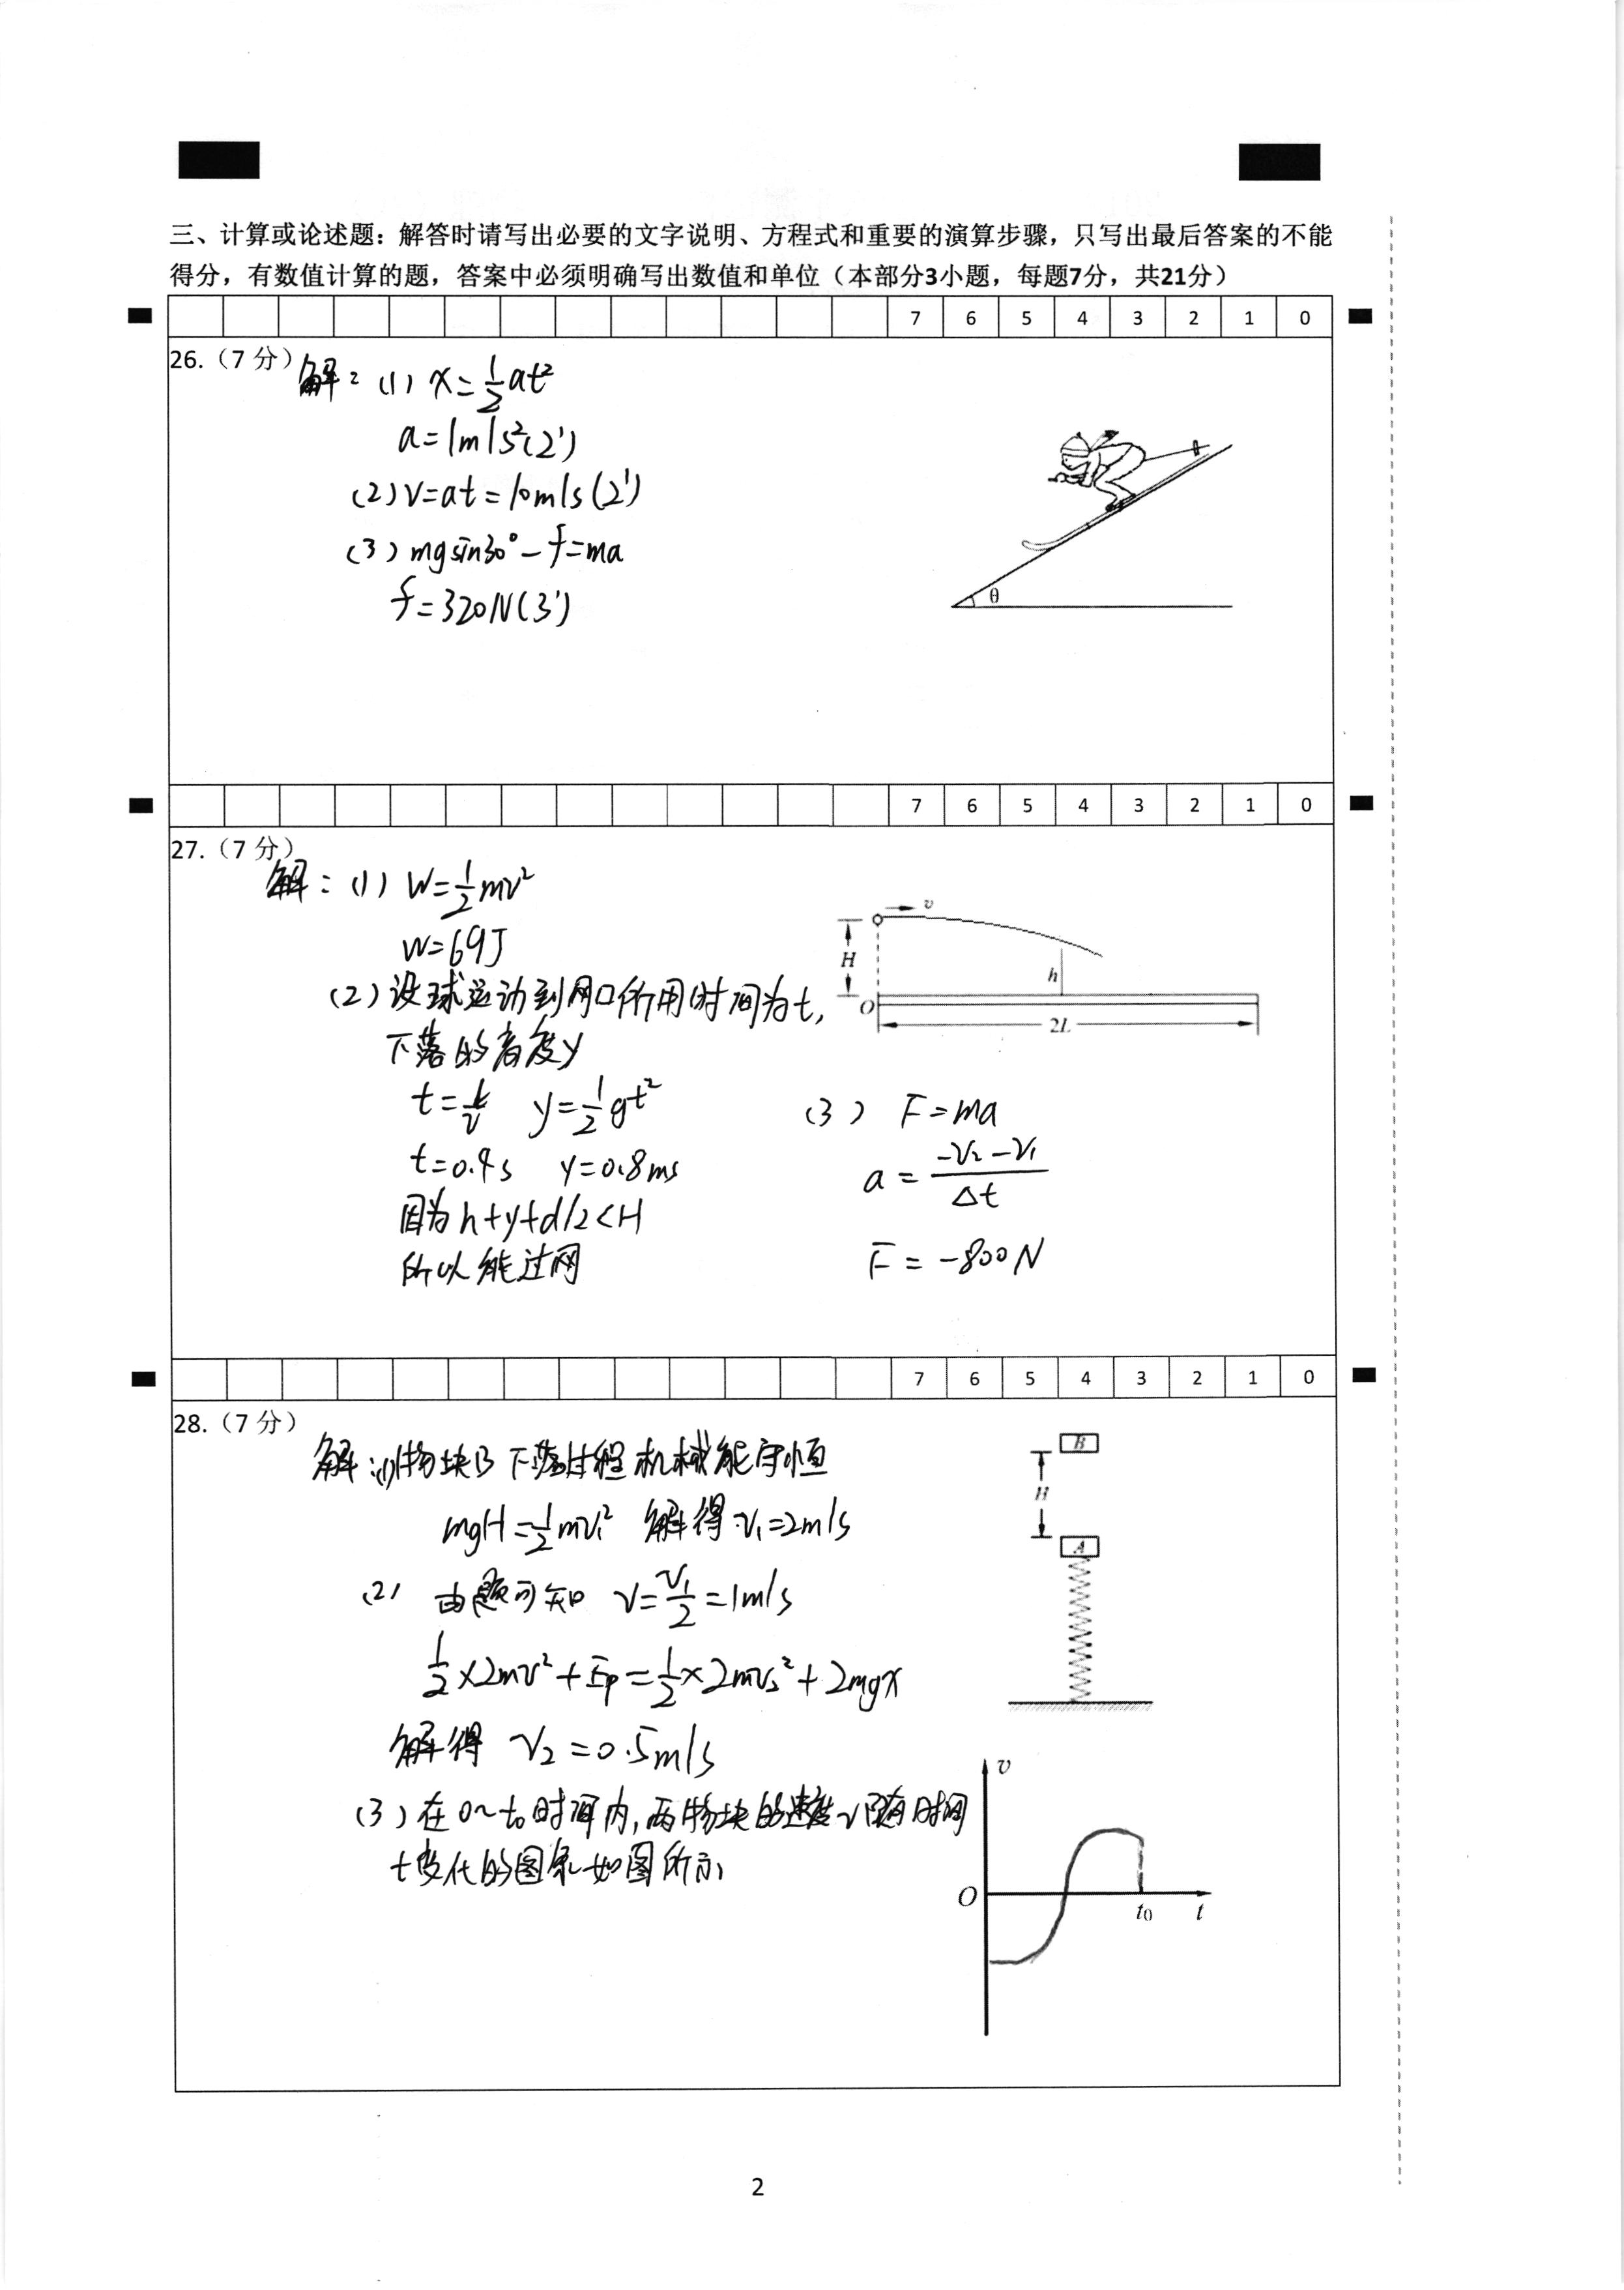 三、计算或论述题：解答时请写出必要的文字说明、方程式和重要的演算步骤，只写出最后答案的不能
得分，有数值计算的题，答案中必须明确写出数值和单位（本部分3小题，每题7分，共21分）
7 6 5 4 3 2 1 0
26.（7 分）
解：(1) x=½at²
a=1m/s²(2')
(2) v=at=10m/s(2')
(3) mgsin30°-f=ma
f=320N(3')
θ
7 6 5 4 3 2 1 0
27.（7 分）
解：(1) W=½mv²
W=69J
(2) 设球运动到网口所用时间为t,
下落的高度y
t=L/v y=½gt²
t=0.4s y=0.8ms
因为h+y+d/2<H
所以能过网
v
H
h
O
2L
(3) F=ma
a=(-v₂-v₁)/Δt
F=-800N
7 6 5 4 3 2 1 0
28.（7 分）
解:(1)物块B下落过程机械能守恒
mgH=½mv₁² 解得v₁=2m/s
(2) 由题可知 v=v₁/2=1m/s
½×2mv²+Ep=½×2mv₂²+2mgx
解得 v₂=0.5m/s
(3) 在0~t₀时间内,两物块的速度v随时间
t变化的图象如图所示
B
H
A
v
O
t₀
t
2